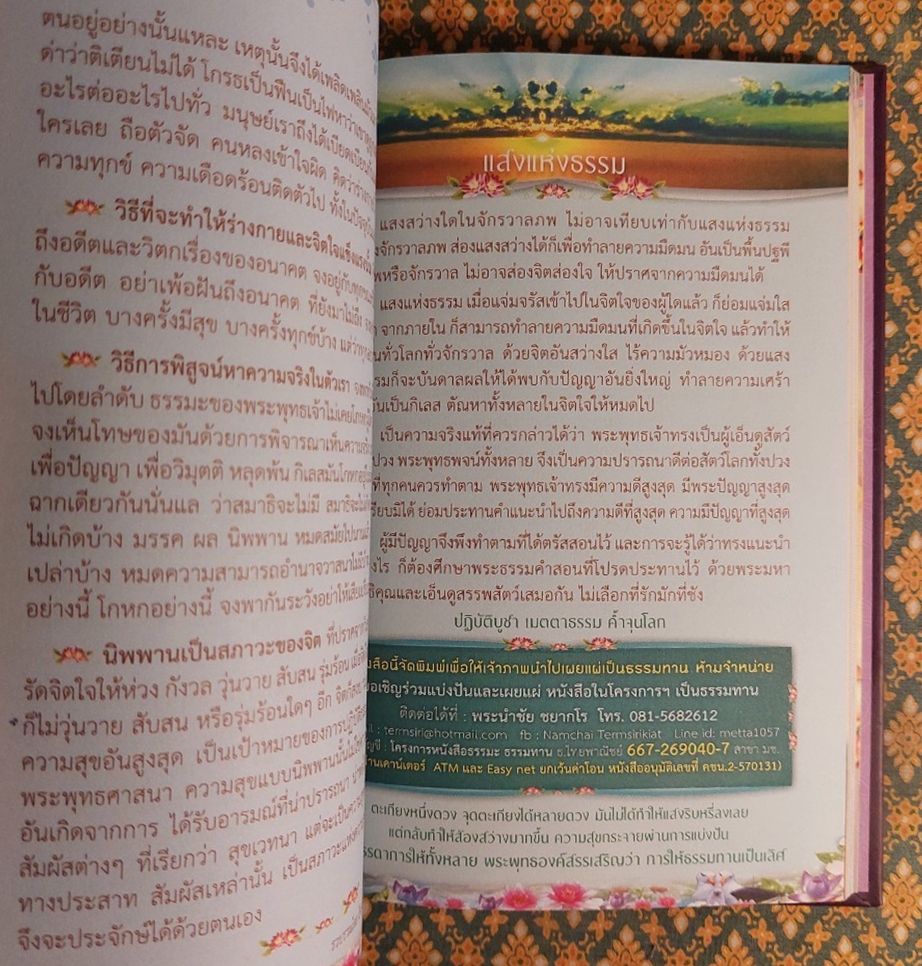 ตนอยู่อย่างนั้นแหละ เหตุนั้นจึงได้เพลิดเพลิน
ด่าว่าติเตียนไม่ได้ โกรธเป็นฟืนเป็นไฟหาว่าเขา
อะไรต่ออะไรไปทั่ว มนุษย์เราถึงได้เบียดเบียน
ใครเลย ถือตัวจัด คนหลงเข้าใจผิด คิดว่า
ความทุกข์ ความเดือดร้อนติดตัวไป ทั้งใน
วิธีที่จะทำให้ร่างกายและจิตใจแข็งแรง
ถึงอดีตและวิตกเรื่องของอนาคต จงอยู่กับ
กับอดีต อย่าเพ้อฝันถึงอนาคต ที่ยังมาไม่ถึง
ในชีวิต บางครั้งมีสุข บางครั้งทุกข์บ้าง แต่ว่า
วิธีการพิสูจน์หาความจริงในตัวเรา
ไปโดยลำดับ ธรรมะของพระพุทธเจ้าไม่เคย
จงเห็นโทษของมันด้วยการพิจารณาเห็นความ
เพื่อปัญญา เพื่อวิมุตติ หลุดพ้น กิเลสมัน
ฉากเดียวกันนั่นแล ว่าสมาธิจะไม่มี สมาธิ
ไม่เกิดบ้าง มรรค ผล นิพพาน หมดสมัยไป
เปล่าบ้าง หมดความสามารถอำนาจวาสนา
อย่างนี้ โกหกอย่างนี้ จงพากันระวังอย่าให้
นิพพานเป็นสภาวะของจิต ที่ปราศจาก
รัดจิตใจให้ห่วง กังวล วุ่นวาย สับสน รุ่มร้อน
ก็ไม่วุ่นวาย สับสน หรือรุ่มร้อนใดๆ อีก
ความสุขอันสูงสุด เป็นเป้าหมายของการปฏิบัติ
พระพุทธศาสนา ความสุขแบบนิพพานนั้น
อันเกิดจากการ ได้รับอารมณ์ที่น่าปรารถนา
สัมผัสต่างๆ ที่เรียกว่า สุขเวทนา แต่จะเป็น
ทางประสาท สัมผัสเหล่านั้น เป็นสภาวะ
จึงจะประจักษ์ได้ด้วยตนเอง
แสงแห่งธรรม
แสงสว่างใดในจักรวาลภพ ไม่อาจเทียบเท่ากับแสงแห่งธรรม
จักรวาลภพ ส่องแสงสว่างได้ก็เพื่อทำลายความมืดมน อันเป็นพื้นปฐพี
หรือจักรวาล ไม่อาจส่องจิตส่องใจ ให้ปราศจากความมืดมนได้
แสงแห่งธรรม เมื่อแจ่มจรัสเข้าไปในจิตใจของผู้ใดแล้ว ก็ย่อมแจ่มใส
จากภายใน ก็สามารถทำลายความมืดมนที่เกิดขึ้นในจิตใจ แล้วทำให้
ทั่วโลกทั่วจักรวาล ด้วยจิตอันสว่างใส ไร้ความมัวหมอง ด้วยแสง
ก็จะบันดาลผลให้ได้พบกับปัญญาอันยิ่งใหญ่ ทำลายความเศร้า
เป็นกิเลส ตัณหาทั้งหลายในจิตใจให้หมดไป
เป็นความจริงแท้ที่ควรกล่าวได้ว่า พระพุทธเจ้าทรงเป็นผู้เอ็นดูสัตว์
ปวง พระพุทธพจน์ทั้งหลาย จึงเป็นความปรารถนาดีต่อสัตว์โลกทั้งปวง
ที่ทุกคนควรทำตาม พระพุทธเจ้าทรงมีความดีสูงสุด มีพระปัญญาสูงสุด
เรียบมิได้ ย่อมประทานคำแนะนำไปถึงความดีที่สูงสุด ความมีปัญญาที่สูงสุด
ผู้มีปัญญาจึงพึงทำตามที่ได้ตรัสสอนไว้ และการจะรู้ได้ว่าทรงแนะนำ
ก็ต้องศึกษาพระธรรมคำสอนที่โปรดประทานไว้ ด้วยพระมหา
คุณและเอ็นดูสรรพสัตว์เสมอกัน ไม่เลือกที่รักมักที่ชัง
ปฏิบัติบูชา เมตตาธรรม ค้ำจุนโลก
จัดพิมพ์เพื่อให้เจ้าภาพนำไปเผยแผ่เป็นธรรมทาน ห้ามจำหน่าย
ขอเชิญร่วมแบ่งปันและเผยแผ่ หนังสือในโครงการฯ เป็นธรรมทาน
ติดต่อได้ที่ : พระนำชัย ชยากโร โทร. 081-5682612
: termsiri@hotmail.com fb : Namchai Termsirikiat Line id: metta1057
: โครงการหนังสือธรรมะ ธรรมทาน ธ.ไทยพาณิชย์ 667-269040-7 สาขา มช.
ผ่านเคาน์เตอร์ ATM และ Easy net ยกเว้นค่าโอน หนังสืออนุมัติเลขที่ คขน.2-570131)
ตะเกียงหนึ่งดวง จุดตะเกียงได้หลายดวง มันไม่ได้ทำให้แสงริบหรี่ลงเลย
แต่กลับทำให้ห้องสว่างมากขึ้น ความสุขกระจายผ่านการแบ่งปัน
การให้ทั้งหลาย พระพุทธองค์สรรเสริญว่า การให้ธรรมทานเป็นเลิศ